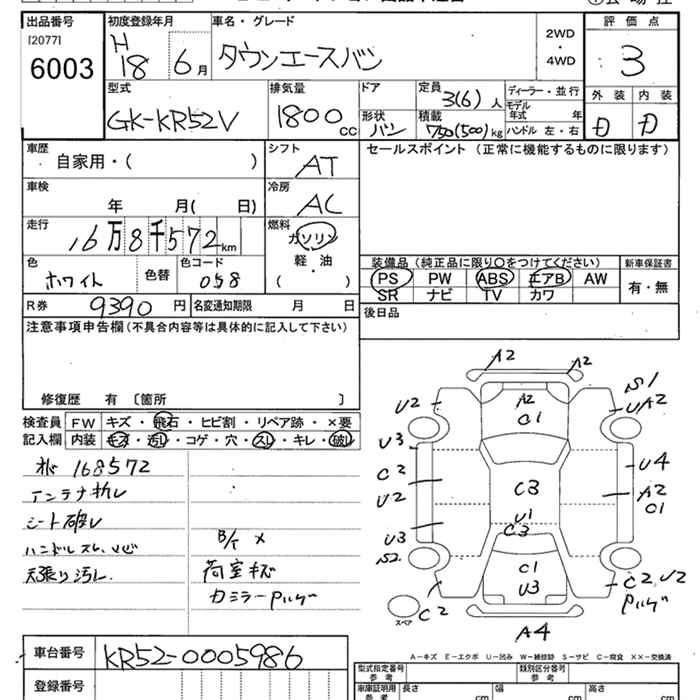 出品番号 初度登録年月 車名・グレード 評価点
[2077] 6003 H 18 6月 タウンエースバン 2WD・4WD 3
外装 内装
D D
型式 排気量 ドア 定員 3(6)人 ディーラー・並行
GK-KR52V 1800cc 形状 バン 積載 750(500)kg モデル年式 年
ハンドル 左・右
車歴 シフト セールスポイント (正常に機能するものに限ります)
自家用・( ) AT
車検 冷房
年 月( 日) AC
走行 燃料
16万8千572km ガソリン
軽・油
( )
色 色替 色コード
ホワイト 058
装備品 (純正品に限り○をつけてください) 新車保証書
PS PW ABS エアB AW 有・無
SR ナビ TV カワ
R券 9390円 名変通知期限 月 日
後日品
注意事項申告欄(不具合内容等は具体的に記入して下さい)
修復歴 有 〔箇所 〕
検査員 FW キズ・飛石・ヒビ割・リペア跡・×要
記入欄 内装 キズ・汚れ・コゲ・穴・スレ・キレ・破れ
168572
アンテナ折レ
シート破レ
ハンドルスレ
天張り汚レ
B/T ×
荷室キズ
A2 A2
S1
U2 A2 UA2
C1
U3
C2 U4
U2 C3 A2
C1
U1
U3 C3
S2
C1
U3 C2 U2
C2
スペア
A4
A－キズ E－エクボ U－凹み W－補修跡 S－サビ C－腐食 ××－交換済
車台番号 KR52-0005986
登録番号
型式指定番号 参考 類別区分番号 参考
車庫証明用 参考 長さ cm 幅 cm 高さ cm